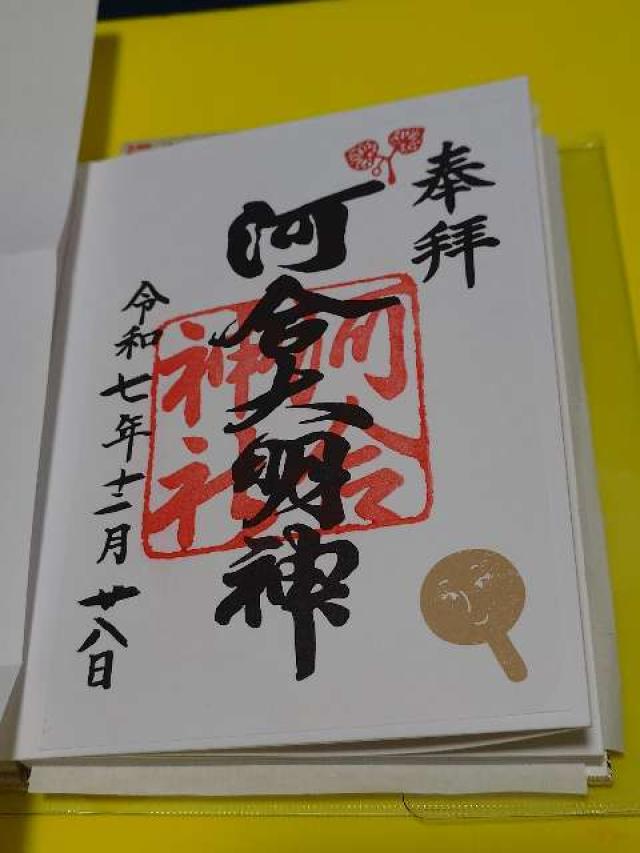 奉拝
河合大明神
河合
神社
令和七年十二月廿八日